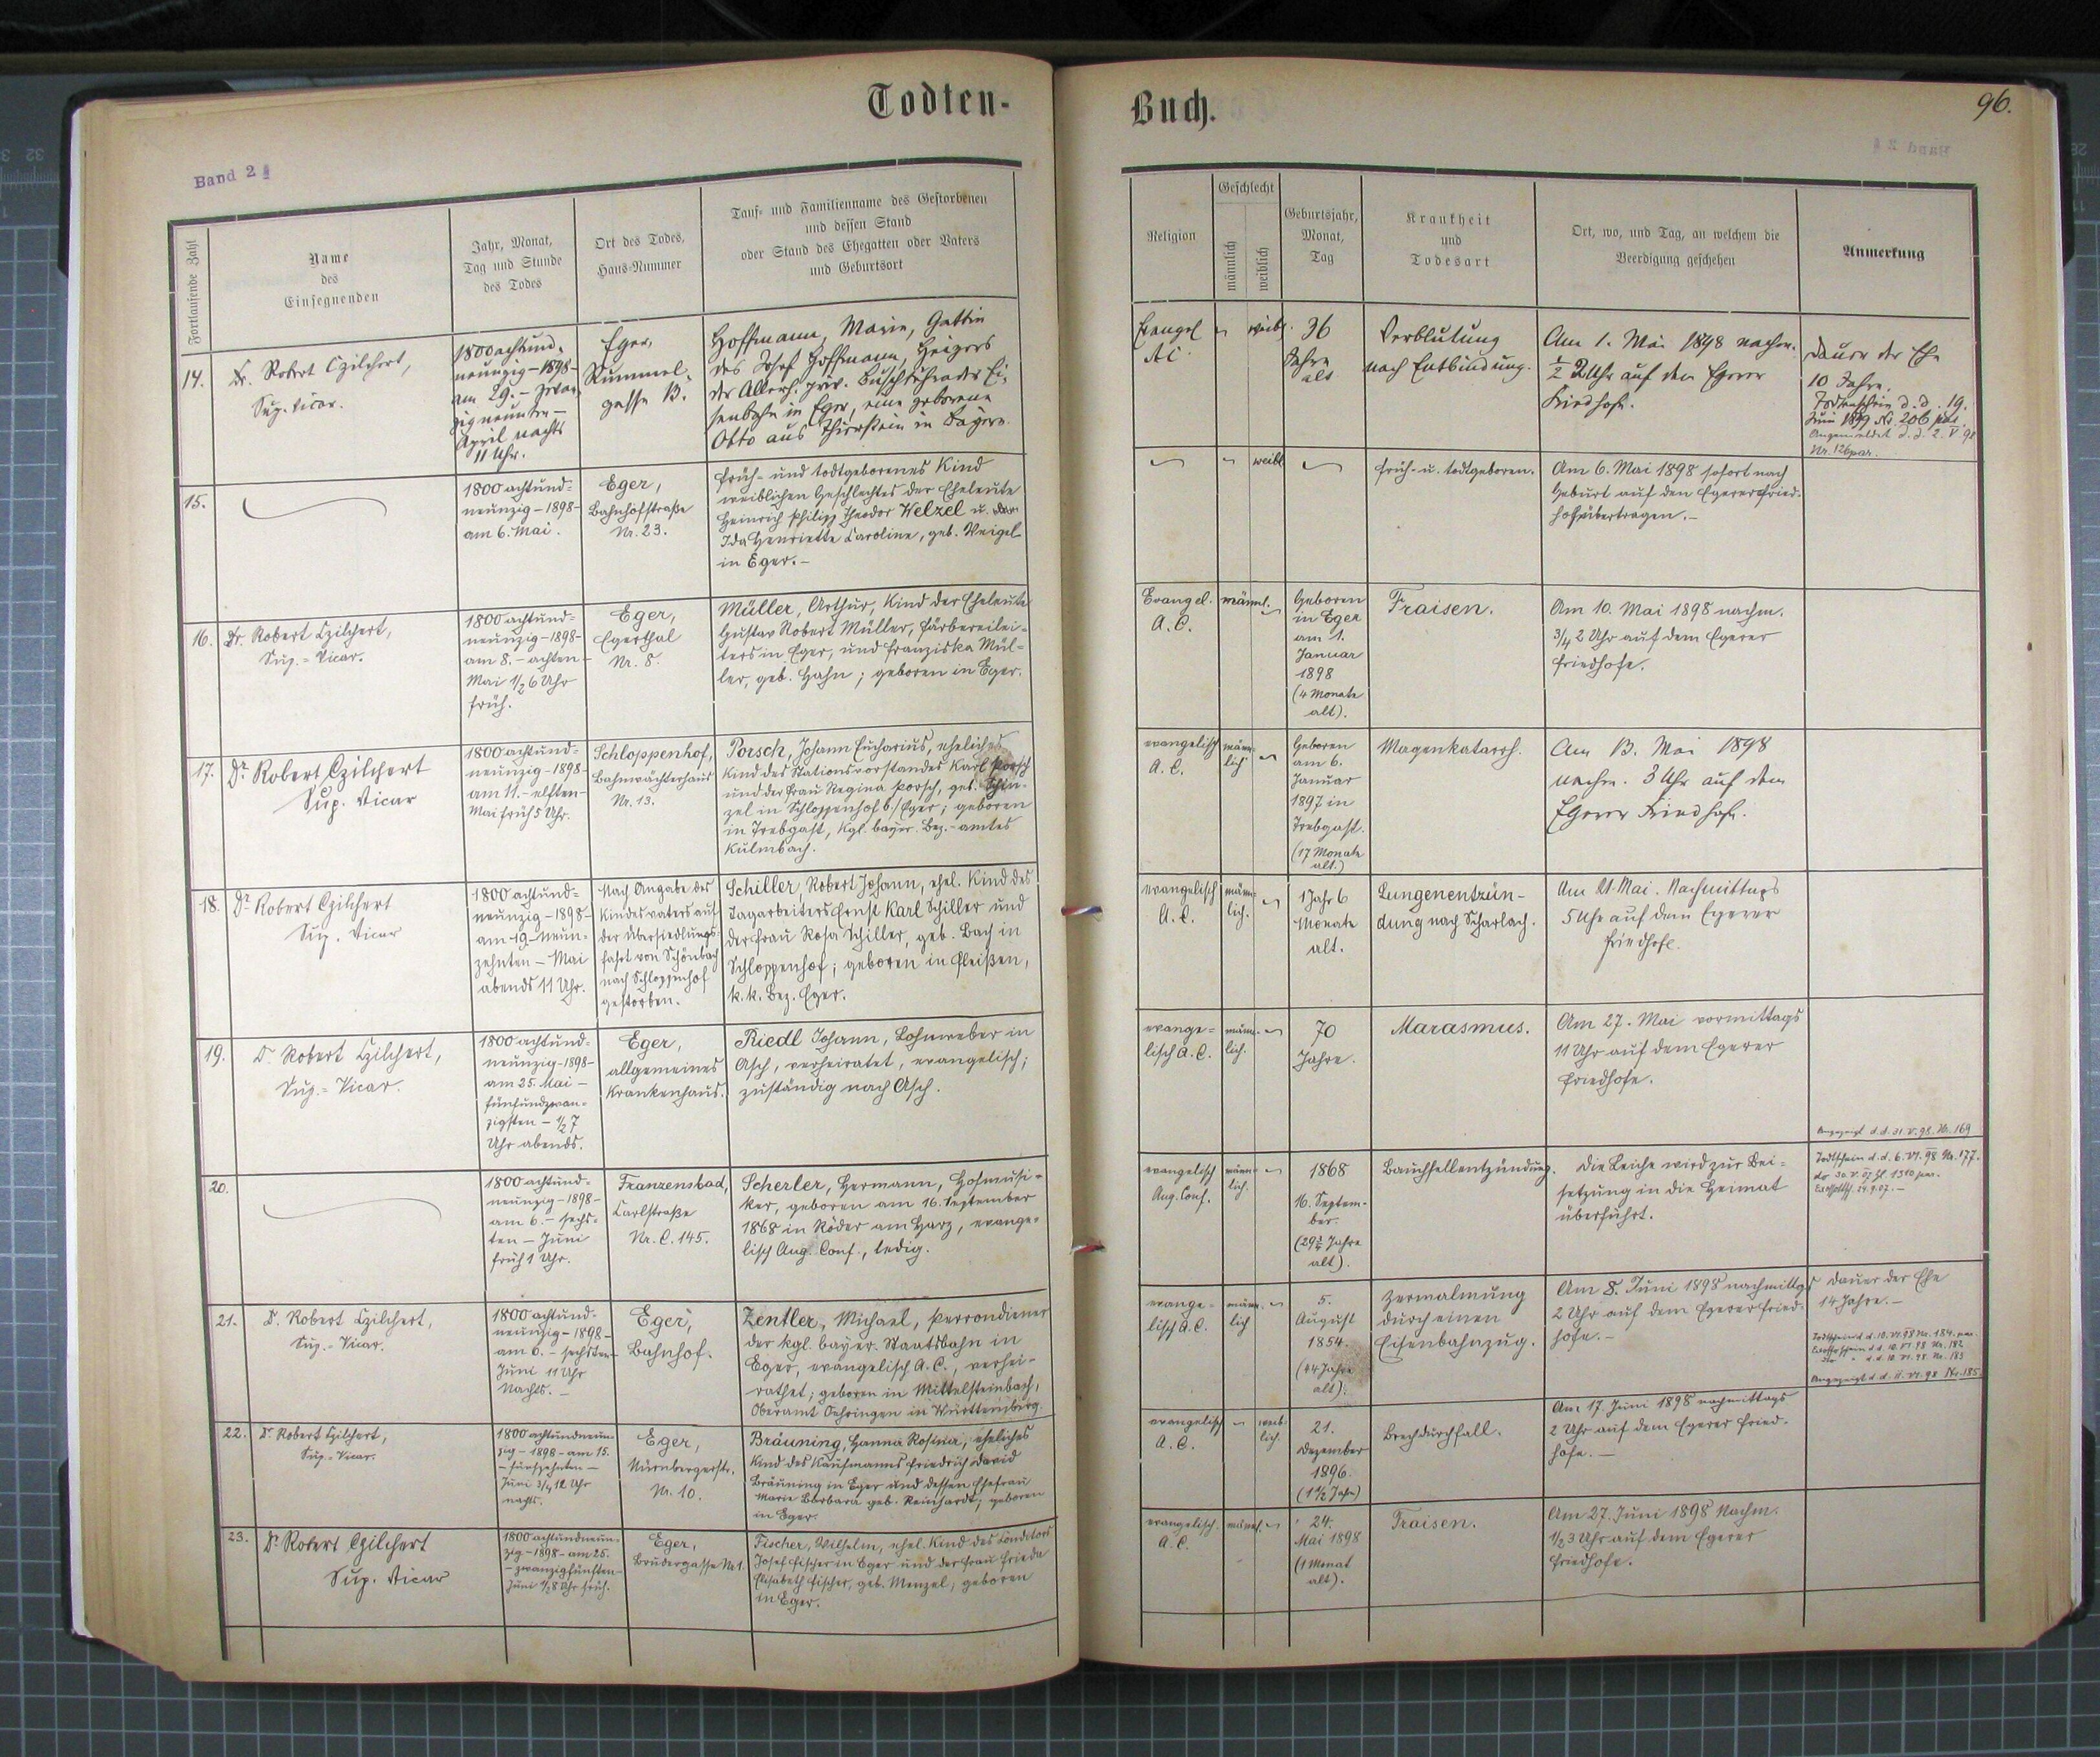 Todten-
Band 2
Fortlaufende Zahl
Name
des
Einsegnenden
Jahr, Monat,
Tag und Stunde
des Todes
Ort des Todes,
Haus-Nummer
Tauf- und Familienname des Gestorbenen
und dessen Stand
oder Stand des Ehegatten oder Vaters
und Geburtsort
14.
Dr. Robert Czilchert,
Sup. Vicar.
1800 achtund-
neunzig - 1898 -
am 29. - zwan-
zigneunten -
April nachts
11 Uhr.
Eger,
Rummel-
gasse 13.
Hoffmann, Marie, Gattin
des Josef Hoffmann, Heizers
der Allerh. priv. Buschtehrader Ei-
senbahn in Eger, eine geborene
Otto aus Thierstein in Bayern.
15.
1800 achtund-
neunzig - 1898 -
am 6. Mai.
Eger,
Bahnhofstraße
Nr. 23.
Früh- und todtgeborenes Kind
weiblichen Geschlechtes der Eheleute
Heinrich Philipp Theodor Welzel u.
Ida Henriette Caroline, geb. Weigel
in Eger. -
16.
Dr Robert Czilchert,
Sup. = Vicar.
1800 achtund-
neunzig - 1898 -
am 8. - achten -
Mai 1/2 6 Uhr
früh.
Eger,
Egerthal
Nr. 8.
Müller, Arthur, Kind der Eheleute
Gustav Robert Müller, Färbereilei-
ters in Eger, und Franziska Mül-
ler, geb. Hahn; geboren in Eger.
17.
Dr Robert Czilchert
Sup. Vicar
1800 achtund-
neunzig - 1898 -
am 11. - elften -
Mai früh 5 Uhr.
Schloppenhof,
Bahnwächterhaus
Nr. 13.
Porsch, Johann Eucharius, eheliches
Kind des Stationsvorstandes Karl Porsch
und der Frau Regina Porsch, geb. Schin-
zel in Schloppenhof b/Eger; geboren
in Trebgast, kgl. bayer. Bez.-amtes
Kulmbach.
18.
Dr Robert Czilchert
Sup. Vicar
1800 achtund-
neunzig - 1898 -
am 19 - neun-
zehnten - Mai
abends 11 Uhr.
Nach Angabe des
Kindesvaters auf
der Übersiedlungs-
fahrt von Schönbach
nach Schloppenhof
gestorben.
Schiller, Robert Johann, ehel. Kind des
Tagarbeiters Ernst Karl Schiller und
der Frau Rosa Schiller, geb. Bach in
Schloppenhof; geboren in Fleißen,
k. k. Bez. Eger.
19.
Dr Robert Czilchert,
Sup. = Vicar.
1800 achtund-
neunzig - 1898 -
am 25. Mai -
fünfundzwan-
zigsten - 1/2 7
Uhr abends.
Eger,
allgemeines
Krankenhaus.
Riedl Johann, Lohnweber in
Asch, verheiratet, evangelisch;
zuständig nach Asch.
20.
1800 achtund-
neunzig - 1898 -
am 6. - sechs-
ten - Juni
früh 1 Uhr.
Franzensbad,
Carlstraße
Nr. C. 145.
Scherler, Hermann, Hofmusi-
ker, geboren am 16. September
1868 in Röder am Harz, evange-
lisch Aug. Conf., ledig.
21.
Dr. Robert Czilchert,
Sup. = Vicar.
1800 achtund-
neunzig - 1898 -
am 6. - sechsten -
Juni 11 Uhr
Nachts. -
Eger,
Bahnhof.
Zentler, Michael, Perrondiener
der kgl. bayer. Staatsbahn in
Eger, evangelisch A. C., verhei-
rathet; geboren in Mittelsteinbach,
Oberamt Oehringen in Württemberg.
22.
Dr Robert Czilchert,
Sup. = Vicar.
1800 achtundneun-
zig - 1898 - am 15.
- fünfzehnten -
Juni 3/4 12 Uhr
nachts.
Eger,
Nürnbergerstr.
Nr. 10.
Bräuning, Hanna Rosina, eheliches
Kind des Kaufmanns Friedrich David
Bräuning in Eger und dessen Ehefrau
Marie Barbara geb. Reinhardt, geboren
in Eger.
23.
Dr Robert Czilchert
Sup. Vicar
1800 achtundneun-
zig - 1898 - am 25.
- zwanzigfünften -
Juni 1/2 8 Uhr früh.
Eger,
Brudergasse Nr 1.
Fischer, Wilhelm, ehel. Kind des Conditors
Josef Fischer in Eger und der Frau Frieda
Elisabeth Fischer, geb. Menzel, geboren
in Eger.
Buch.
96.
Religion
Geschlecht
männlich
weiblich
Geburtsjahr,
Monat,
Tag
Krankheit
und
Todesart
Ort, wo, und Tag, an welchem die
Beerdigung geschehen
Anmerkung
Evangel
AC
weibl.
36
Jahre
alt
Verblutung
nach Entbindung.
Am 1. Mai 1898 nachm.
1/2 2 Uhr auf dem Egerer
Friedhofe.
Dauer der Ehe
10 Jahre.
Todtenschein d. d. 19.
Juni 1899 No 206 par.
Angemeldet d. d. 2. V 98
Nr. 126 par.
weibl
früh- u. todtgeboren.
Am 6. Mai 1898 sofort nach
Geburt auf den Egerer Fried-
hof übertragen. -
Evangel.
A. C.
männl.
Geboren
in Eger
am 1.
Januar
1898
(4 Monate
alt).
Fraisen.
Am 10. Mai 1898 nachm.
3/4 2 Uhr auf dem Egerer
Friedhofe.
evangelisch
A. C.
männ-
lich.
Geboren
am 6.
Januar
1897 in
Trebgast.
(17 Monate
alt.)
Magenkatarrh.
Am 13. Mai 1898
nachm. 3 Uhr auf dem
Egerer Friedhofe.
evangelisch
A. C.
männ-
lich.
1 Jahr 6
Monate
alt.
Lungenentzün-
dung nach Scharlach.
Am 21. Mai. Nachmittags
5 Uhr auf dem Egerer
Friedhofe.
evange-
lisch A. C.
männ-
lich.
70
Jahre.
Marasmus.
Am 27. Mai vormittags
11 Uhr auf dem Egerer
Friedhofe.
Angezeigt d. d. 31. V. 98. Nr. 169
evangelisch
Aug. Conf.
männ-
lich.
1868
16. Septem-
ber.
(29 3/4 Jahre
alt).
Bauchfellentzündung.
Die Leiche wird zur Bei-
setzung in die Heimat
überführt.
Todtschein d. d. 6. VI. 98 Nr. 177.
evange-
lisch A. C.
männ-
lich
5.
August
1854.
(44 Jahre
alt).
Zermalmung
durch einen
Eisenbahnzug.
Am 8. Juni 1898 nachmittgs
2 Uhr auf dem Egerer Fried-
hofe. -
Dauer der Ehe
14 Jahre. -
Todtschein d. d. 10. VI. 98 Nr. 184.
d. d. 10. VI. 98 Nr. 182
d. d. 10. VI. 98 Nr. 183
Angezeigt d. d. 11. VI. 98 Nr. 185
evangelisch
A. C.
weib-
lich.
21.
Dezember
1896.
(1 1/2 Jahr)
Brechdurchfall.
Am 17. Juni 1898 nachmittags
2 Uhr auf dem Egerer Fried-
hofe. -
evangelisch.
A. C.
männl.
24.
Mai 1898
(1 Monat
alt).
Fraisen.
Am 27. Juni 1898 Nachm.
1/2 3 Uhr auf dem Egerer
Friedhofe.